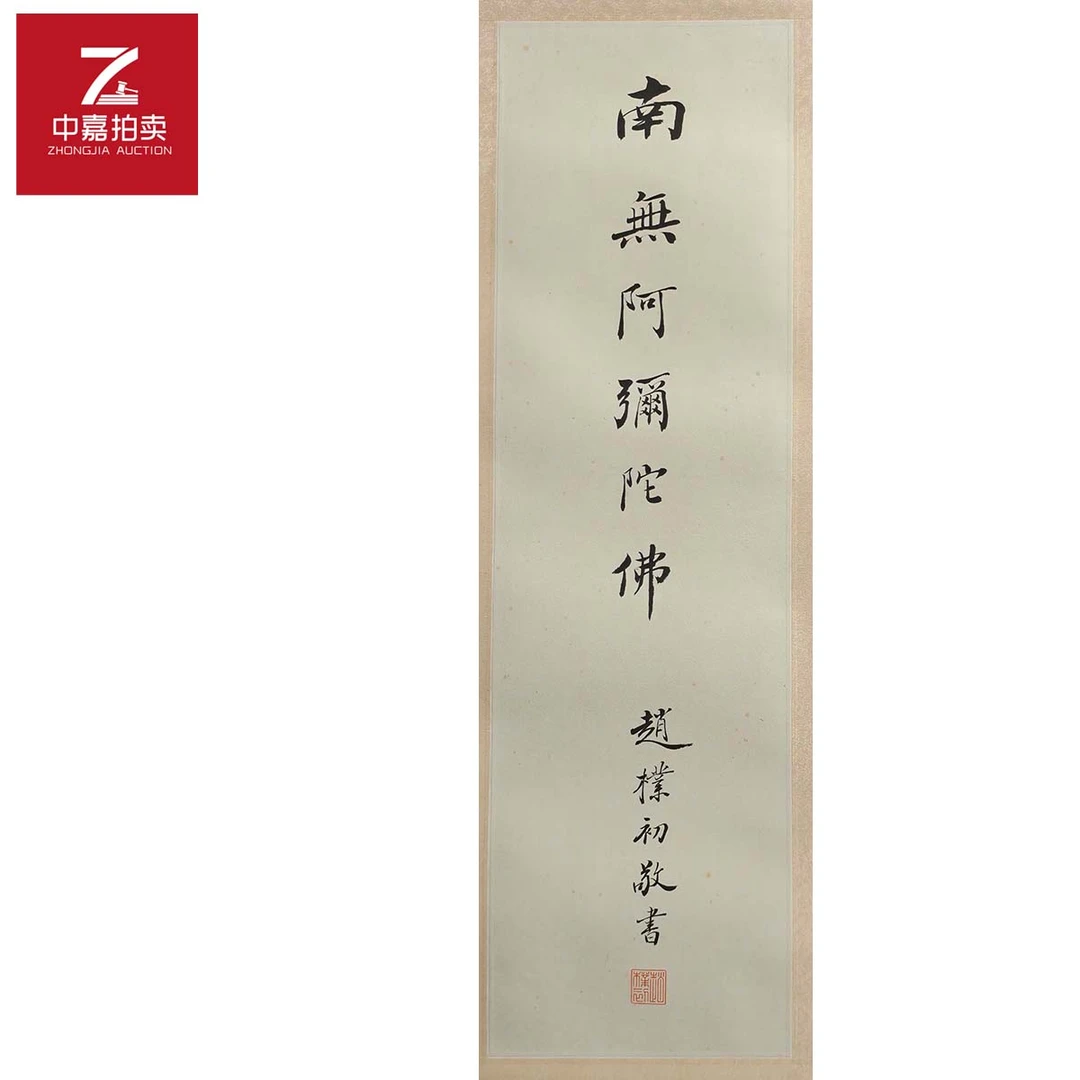 中嘉拍卖
ZHONGJIA AUCTION
南無阿彌陀佛
趙樸初敬書